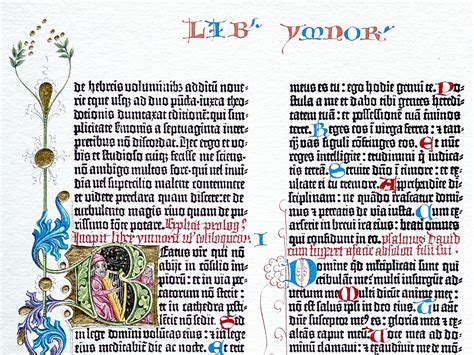 LIB' YMNOR'
de hebreis voluminibz additū noue-
rit eque usqz ad duo pūcta·iuxta theo-
dotionis dumtaxat editionē: qui sim-
plicitate sermonis a septuaginta inter-
pretibus nō discordat. Nec ergo et vo-
bis et studioso cuiqz fecisse me sciens·
nō ambigo multos fore·qui vel inui-
dia vel supercilio malent contemnere
videre preclara quam discere: et de
turbulento magis riuo quam de pu-
rissimo fonte potare. Explicit prologꝰ
Incipit liber ymnorū vel soliloquiorū
I
Beatus vir qui nō
abijt in cōsilio im-
piorū: et in via pec-
catorum nō stetit:
et in cathedra pesti-
lentie nō sedit. Sed
in lege domini volūtas eius: et in lege
eius meditabitur die ac nocte. Et erit
meus es tu: ego hodie genui te. Po-
stula a me et dabo tibi gentes heredita-
tem tuam: et possessionē tuā terminos
terre. Reges eos ī virga ferrea: et tamqz
vas figuli confringes eos. Et nūc
reges intelligite: erudimini qui iudica-
tis terrā. Seruite dn̄o ī timore: et ex-
ultate ei cū tremore. Apprehendite di-
sciplinam: ne quando irascatur domi-
nus et pereatis de via iusta. Cum ex-
arserit ī breui ira eius: beati omnes
qui confidunt in eo. psalmus dauid
cum fugeret a facie absalon filii sui
Domine quid multiplicati sunt qui
tribulāt me? Multi insurgūt
aduersum me: multi dicunt anime
mee nō est salus ipsi in deo eius. Tu
autē dn̄e susceptor meꝰ es: gloria mea et
exaltans caput meum. Voce mea ad